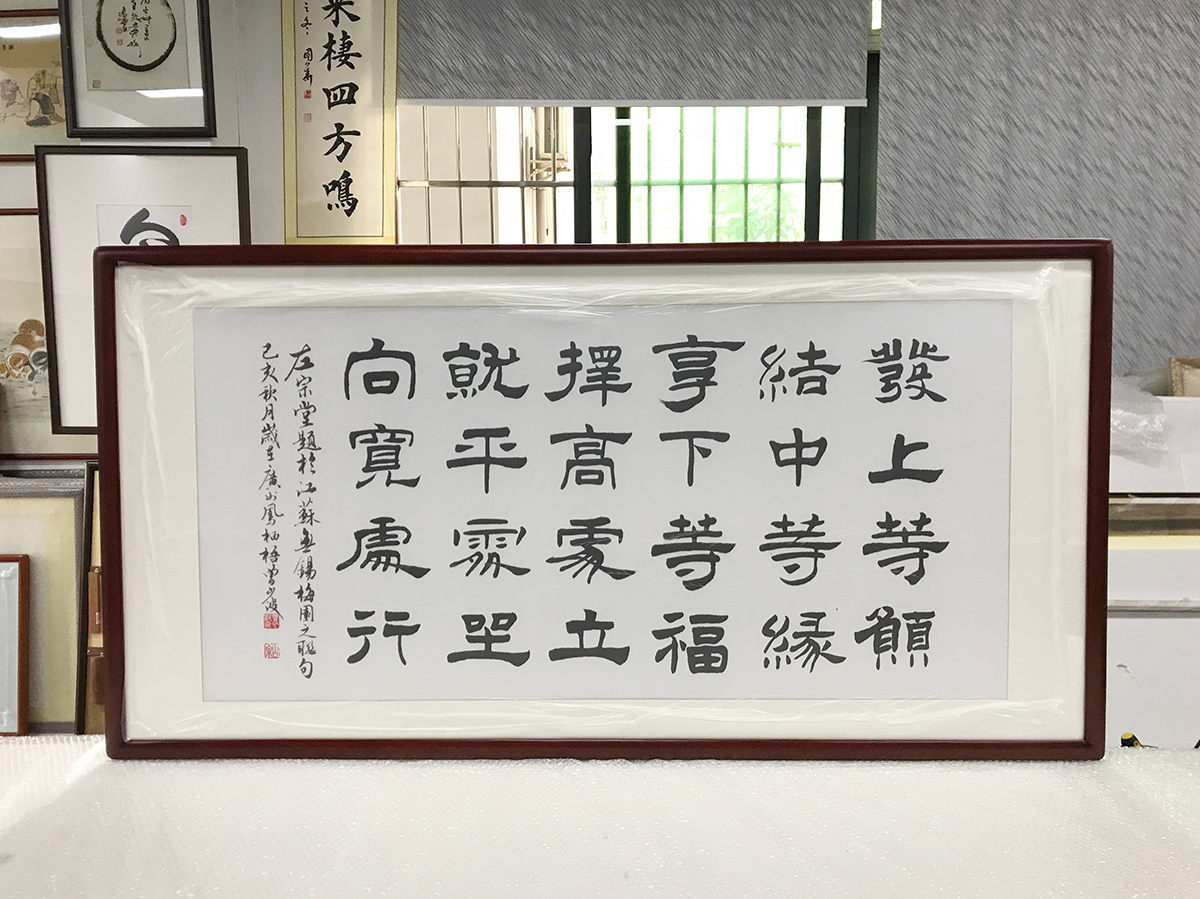 發上等願
結中等緣
享下等福
擇高處立
就平處坐
向寬處行
左宗堂題於江蘇無錫梅園之聯句
己亥秋月歲在廣州鳳栖梧曾
棲四方鳴